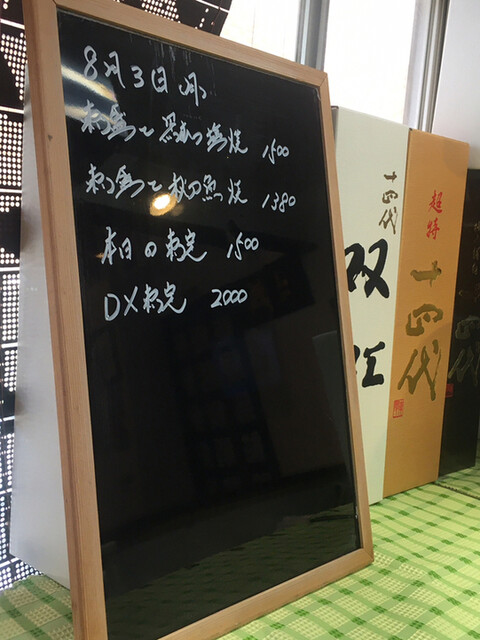 8月3日(月)
刺盛と黒むつ塩焼 1500
刺盛と秋刀魚焼 1380
本日の刺定 1500
DX刺定 2000
十四代
双虹
超特
十四代